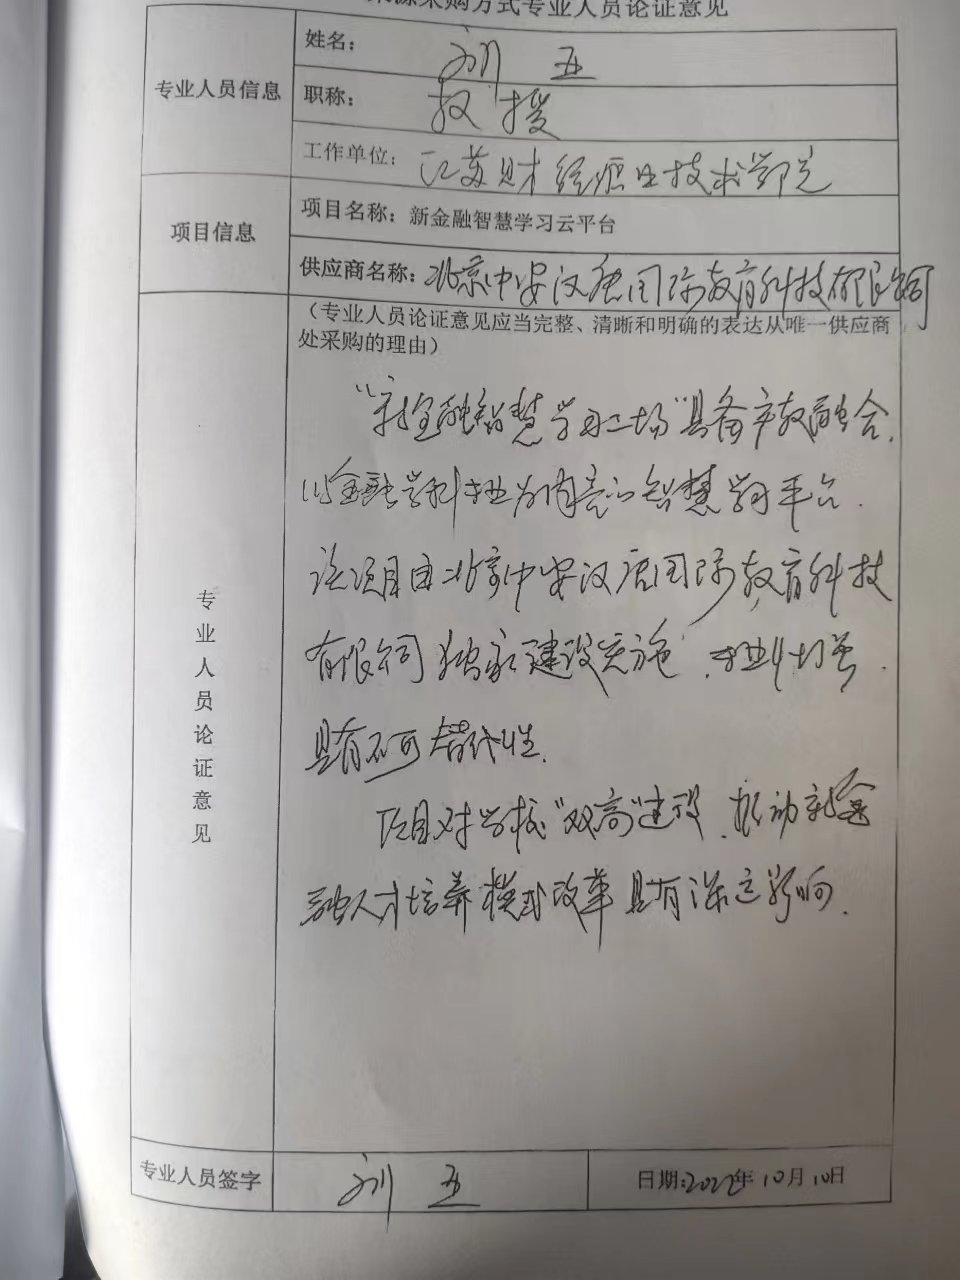 来源采购方式专业人员论证意见
专业人员信息
姓名： 刘 五
职称： 教 授
工作单位： 江苏财经职业技术学院
项目信息
项目名称：新金融智慧学习云平台
供应商名称：北京中安汉唐国际教育科技有限公司
专业人员论证意见
（专业人员论证意见应当完整、清晰和明确的表达从唯一供应商
处采购的理由）
“新金融智慧学习工场”具备产教融合，
以金融学科专业为背景的智慧学习平台．
该项目由北京中安汉唐国际教育科技
有限公司独家建设实施．专业性强．
具有不可替代性．
项目对学校“双高”建设、推动新金
融人才培养模式改革具有深远影响．
专业人员签字
刘 五
日期:2022年10月10日